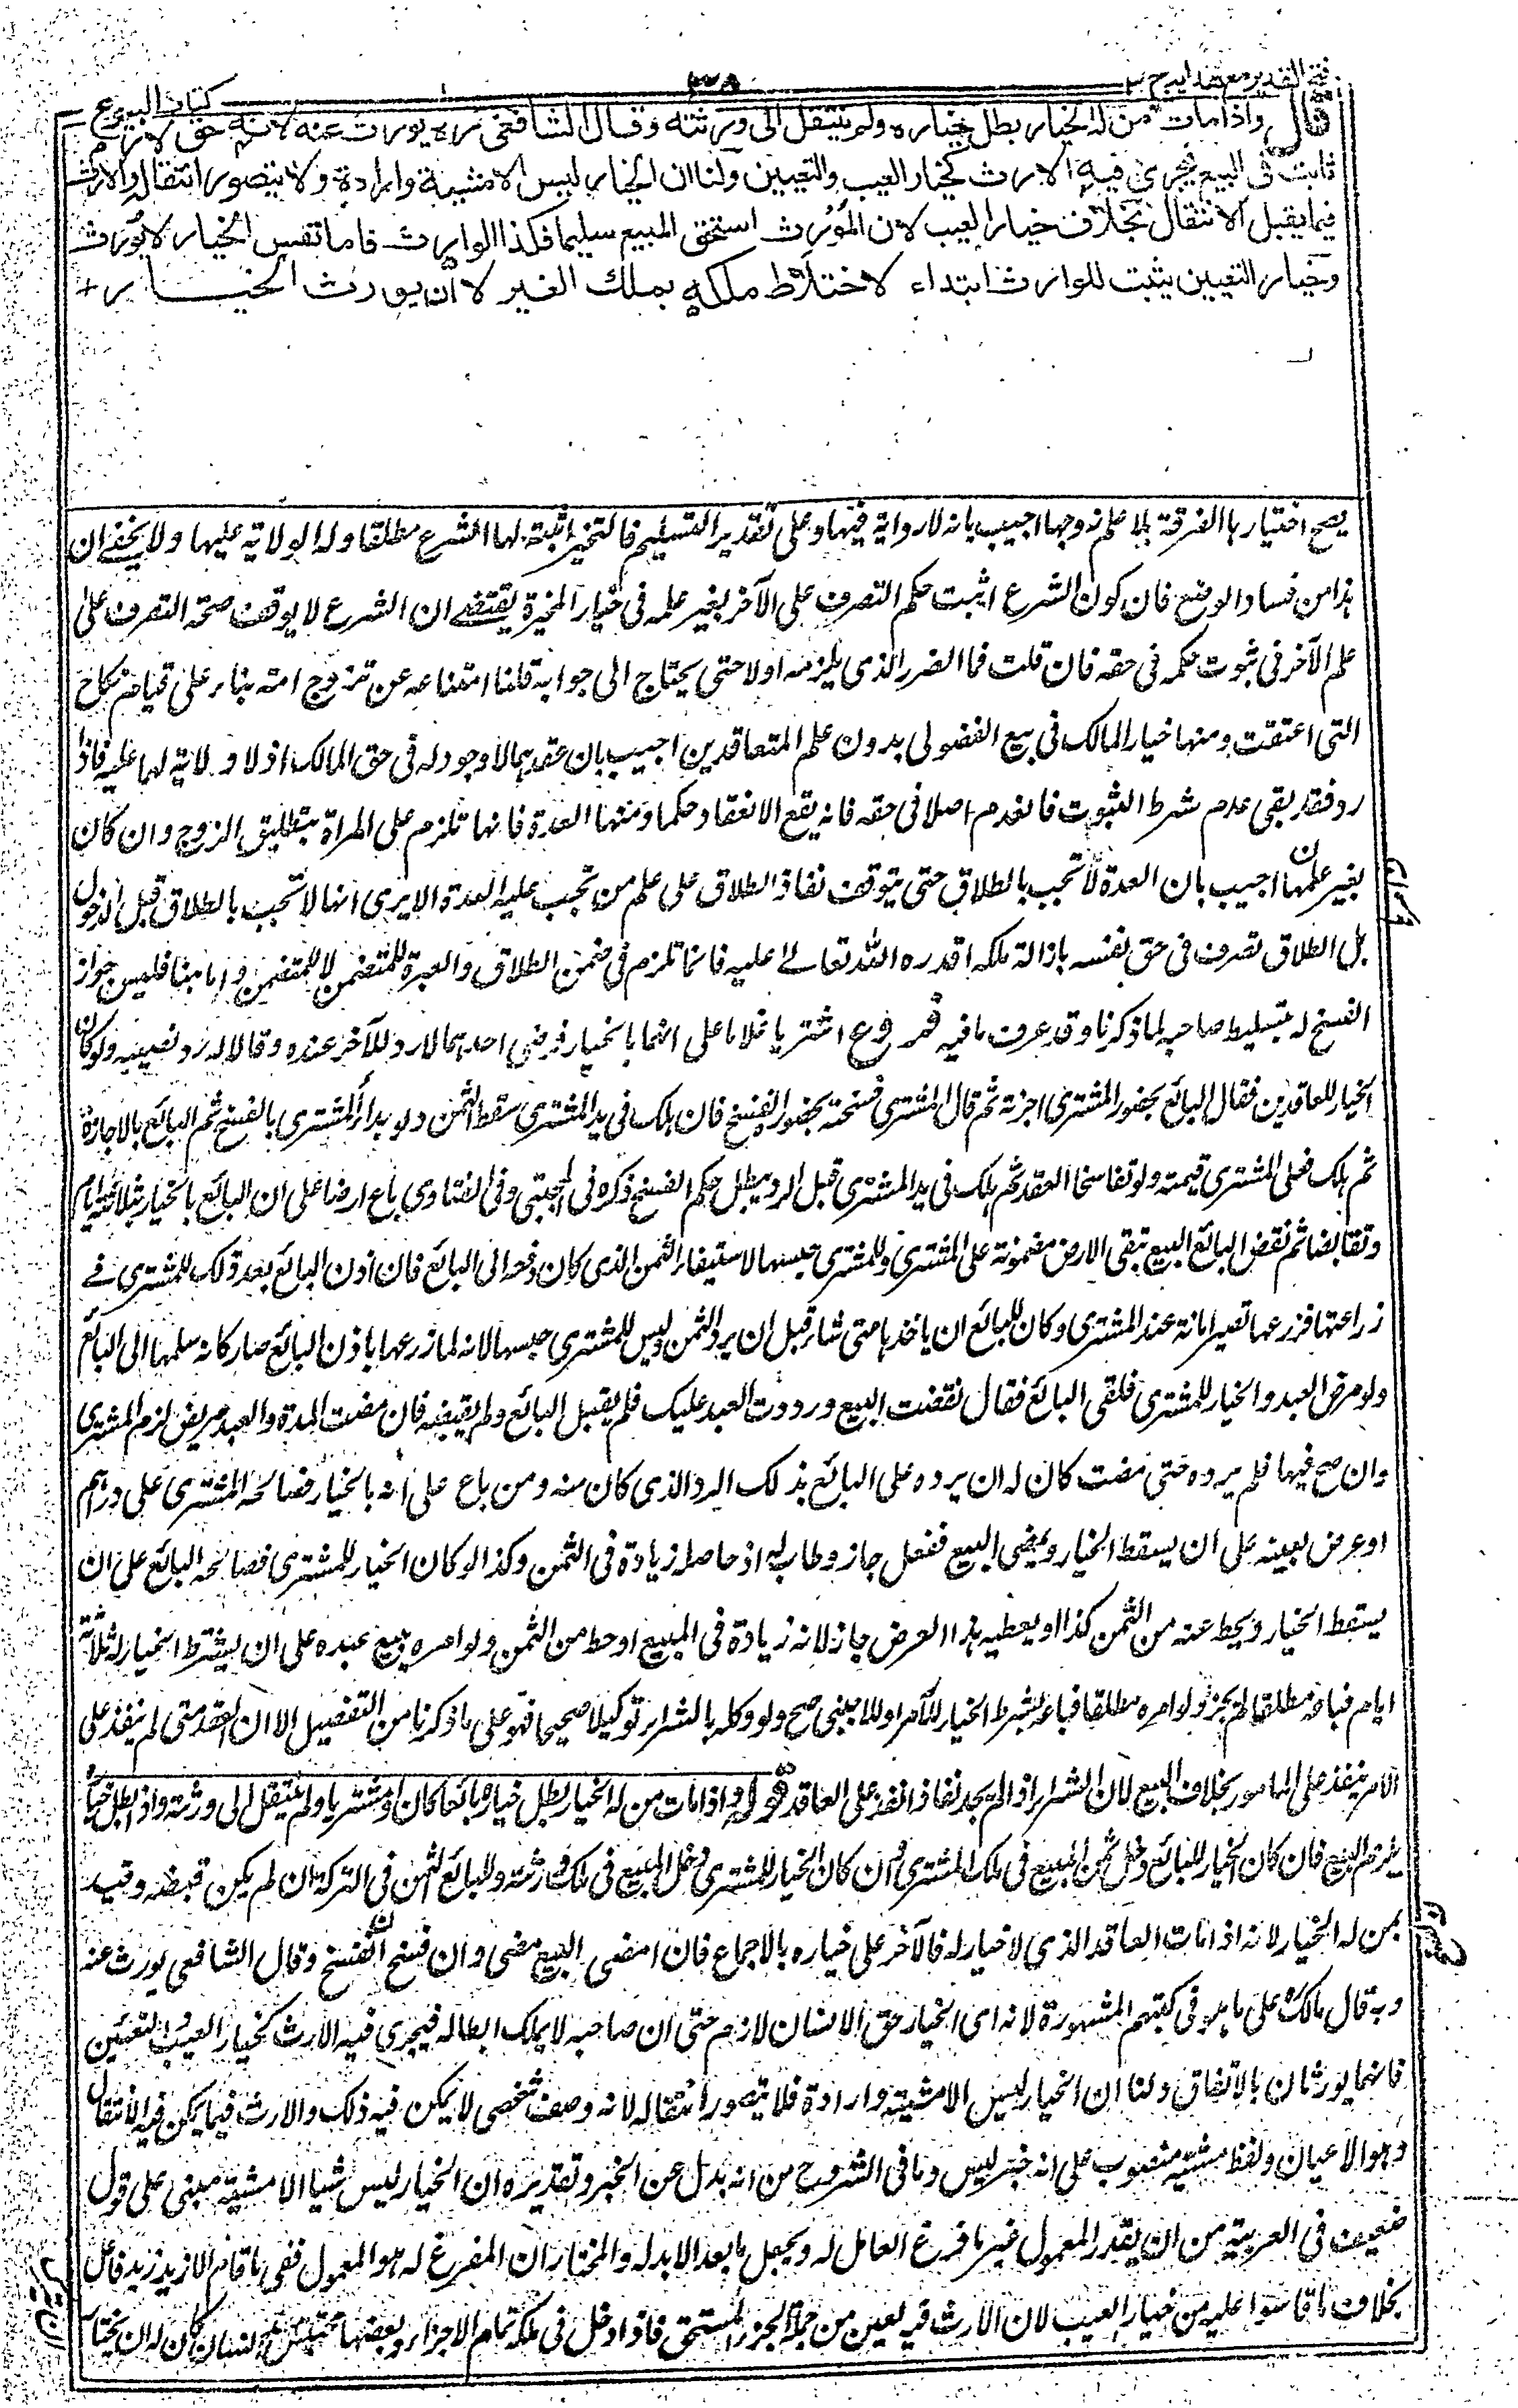 فتح القدير مع هدايه ج ٣
كتاب البيوع
قال واذا مات من له الخيار بطل خياره ولم ينتقل الى ورثته وقال الشافعى ره يورث عنه لانه حق لازم
ثابت فى البيع فيجرى فيه الارث كخيار العيب والتعيين ولنا ان الخيار ليس الا مشية وارادة ولا يتصور انتقاله والارث
فيما يقبل الانتقال بخلاف خيار العيب لان المورث استحق المبيع سليما فكذا الوارث فاما نفس الخيار لا يورث
وخيار التعيين يثبت للوارث ابتداء لاختلاط ملكه بملك الغير لا ان يورث الخيار +
يصح اختيارها الفرقة بلا علم زوجها اجيب بانه لا رواية فيها وعلى تقدير التسليم فالتخيير اثبته لها الشرع مطلقا وله الولاية عليها ولا يخفى ان
هذا من فساد الوضع فان كون الشرع اثبت حكم التصرف على الآخر بغير علمه فى خيار المخيرة يقتضى ان الشرع لا يوقف صحة التصرف على
علم الآخر فى ثبوت حكمه فى حقه فان قلت فما الضرر الذى يلزمه اولا حتى يحتاج الى جوابه قلنا امتناعه عن تزوج امة بناء على قيام نكاح
التى اعتقت ومنها خيار المالك فى بيع الفضولى بدون علم المتعاقدين اجيب بان عقدهما لا وجود له فى حق المالك اذ لا ولاية لهما عليه فاذا
رد فقد بقى عدم شرط الثبوت فانعدم اصلا فى حقه فانه يقع الانعقاد حكما ومنها العدة فانها تلزم على المراة بتطليق الزوج وان كان
بغير علمها اجيب بان العدة لا تجب بالطلاق حتى يتوقف نفاذ الطلاق على علم من تجب عليه العدة الا يرى انها لا تجب بالطلاق قبل الدخول
بل الطلاق تصرف فى حق نفسه بازالة ملكه اقدره الله تعالى عليه فانما تلزم فى ضمن الطلاق والعبرة للمتضمن لا للمتضمن واما هنا فليس جواز
الفسخ له بتسليط صاحبه لما ذكرنا وقد عرفت ما فيه فروع اشتريا غلاما على انهما بالخيار فرضى احدهما لا رد للآخر عنده وقالا له رد نصيبه ولو كان
الخيار للعاقدين فقال البائع بحضور المشترى اجزته ثم قال المشترى فسخته بحضوره انفسخ فان هلك فى يد المشترى سقط الثمن ولو بدأ المشترى بالفسخ ثم البائع بالاجازة
ثم هلك فعلى المشترى قيمته ولو تفاسخا العقد ثم هلك فى يد المشترى قبل الرد يبطل حكم الفسخ ذكره فى المجتبى وفى الفتاوى باع ارضا على ان البائع بالخيار ثلاثة ايام
وتقابضا ثم نقض البائع البيع تبقى الارض مضمونة على المشترى وللمشترى حبسها لاستيفاء الثمن الذى كان دفعه الى البائع فان اذن البائع بعد ذلك للمشترى فى
زراعتها فزرعها تصير امانة عند المشترى وكان للبائع ان ياخذها متى شاء قبل ان يرد الثمن وليس للمشترى حبسها لانه لما زرعها باذن البائع صار كانه سلمها الى البائع
ولو مرض العبد والخيار للمشترى فلقى البائع فقال نقضت البيع ورددت العبد عليك فلم يقبل البائع ولم يقبضه فان مضت المدة والعبد مريض لزم المشترى
وان صح فيها فلم يرده حتى مضت كان له ان يرده على البائع بذلك الرد الذى كان منه ومن باع على انه بالخيار فصالحه المشترى على دراهم
او عرض بعينه على ان يسقط الخيار ويمضى البيع ففعل جاز وطاب له اذ حاصله زيادة فى الثمن وكذا لو كان الخيار للمشترى فصالحه البائع على ان
يسقط الخيار ويحط عنه من الثمن كذا او يعطيه هذا العرض جاز لانه زيادة فى المبيع او حط من الثمن ولو امره ببيع عبده على ان يشترط الخيار له ثلاثة
ايام فباعه مطلقا لم يجز ولو امره مطلقا فباعه بشرط الخيار للآمر او للاجنبى صح ولو وكله بالشراء توكيلا صحيحا فهو على ما ذكرنا من التفصيل الا ان العقد متى لم ينفذ على
الآمر ينفذ على المامور بخلاف البيع لان الشراء اذا لم يجد نفاذا نفذ على العاقد قوله واذا مات من له الخيار بطل خياره بائعا كان او مشتريا ولم ينتقل الى ورثته واذا بطل خياره
يلزم البيع فان كان الخيار للبائع دخل ثمن المبيع فى ملك المشترى وان كان الخيار للمشترى دخل المبيع فى ملك ورثته وللبائع الثمن فى التركة ان لم يكن قبضه وقيد
بمن له الخيار لانه اذا مات العاقد الذى لا خيار له فالآخر على خياره بالاجماع فان امضى البيع مضى وان فسخ انفسخ وقال الشافعى يورث عنه
وبه قال مالك على ما هو فى كتبهم المشهورة لانه اى الخيار حق الانسان لازم حتى ان صاحبه لا يملك ابطاله فيجرى فيه الارث كخيار العيب والتعيين
فانهما يورثان بالاتفاق ولنا ان الخيار ليس الا مشيته وارادة فلا يتصور انتقاله لانه وصف شخصى لا يمكن فيه ذلك والارث فيما يمكن فيه الانتقال
وهو الاعيان ولفظ مشيته منصوب على انه خبر ليس وما فى الشروح من انه بدل عن الخبر وتقديره ان الخيار ليس شيا الا مشيته مبنى على قول
ضعيف فى العربية من ان يقدر المعمول غير ما فرغ العامل له ويجعل ما بعد الا بدله والمختار ان المفرغ له هو المعمول ففى ما قام الا زيد زيد فاعل
بخلاف ما قاسوا عليه من خيار العيب لان الارث فيه لعين من جملة الجزء المستحق فاذا دخل فى ملكه تمام الاجزاء وبعضها محتبس عند انسان كان له ان يختار